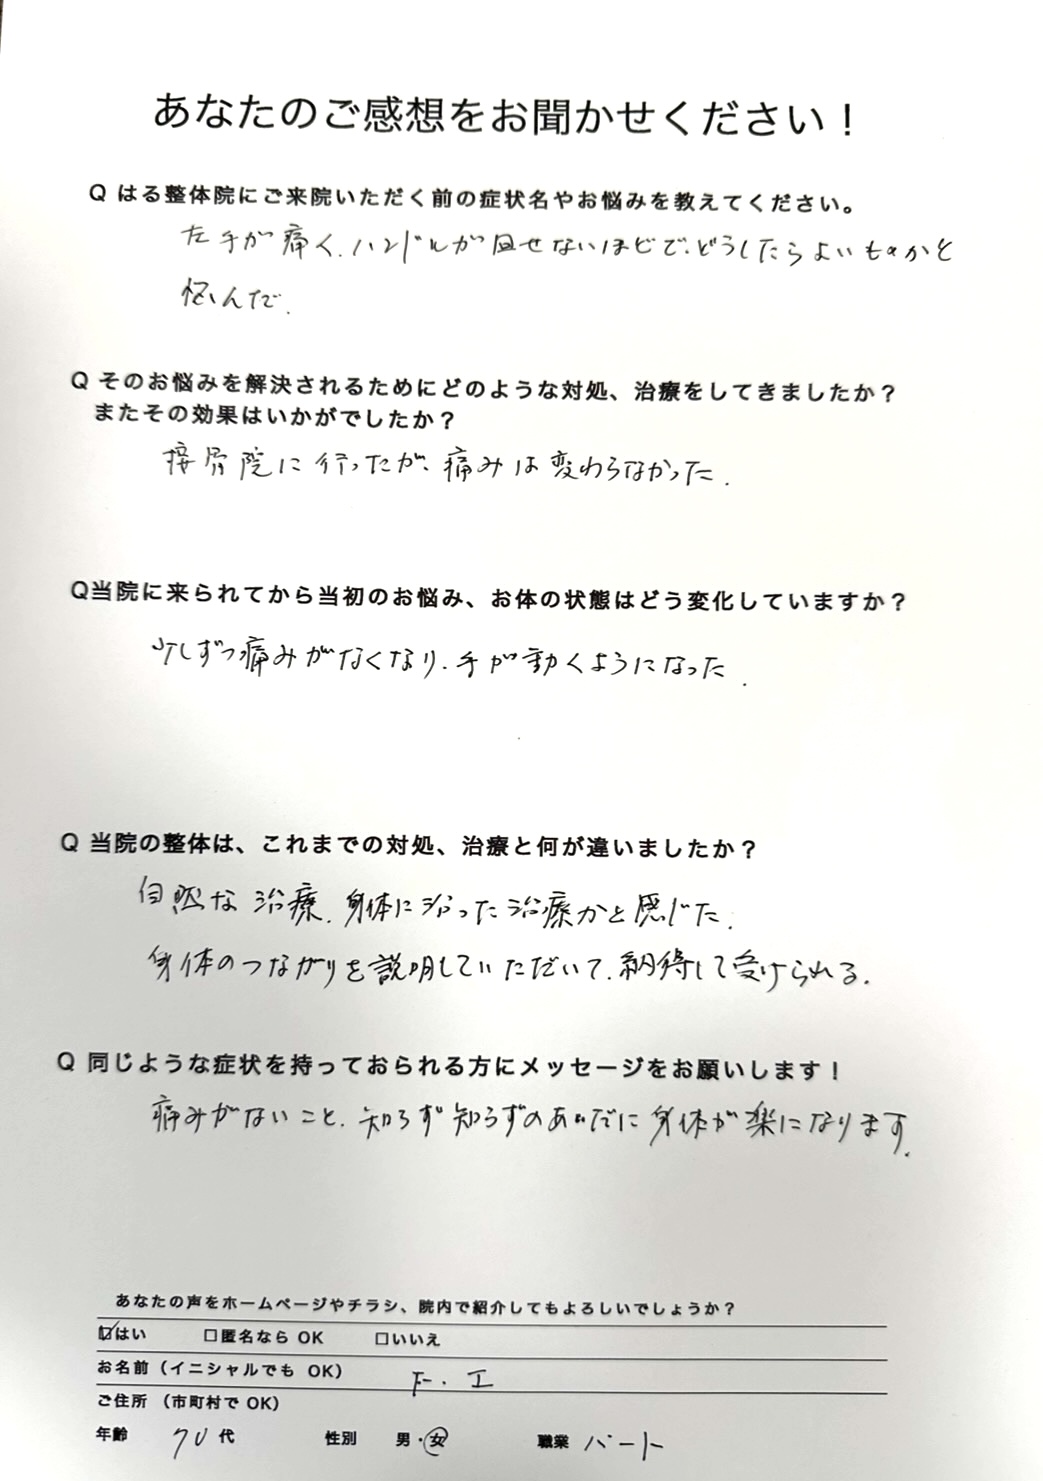 あなたのご感想をお聞かせください！
Q はる整体院にご来院いただく前の症状名やお悩みを教えてください。
左手が痛く、ハンドルが回せないほどで、どうしたらよいものかと
悩んだ。
Q そのお悩みを解決されるためにどのような対処、治療をしてきましたか？
またその効果はいかがでしたか？
接骨院に行ったが、痛みは変わらなかった。
Q当院に来られてから当初のお悩み、お体の状態はどう変化していますか？
少しずつ痛みがなくなり、手が動くようになった。
Q 当院の整体は、これまでの対処、治療と何が違いましたか？
自然な治療、身体に沿った治療かと感じた。
身体のつながりを説明していただいて、納得して受けられる。
Q 同じような症状を持っておられる方にメッセージをお願いします！
痛みがないこと、知らず知らずのあいだに身体が楽になります。
あなたの声をホームページやチラシ、院内で紹介してもよろしいでしょうか？
☑はい □匿名なら OK □いいえ
お名前（イニシャルでも OK） F. I
ご住所（市町村で OK）
年齢 70代 性別 男・女 職業 パート